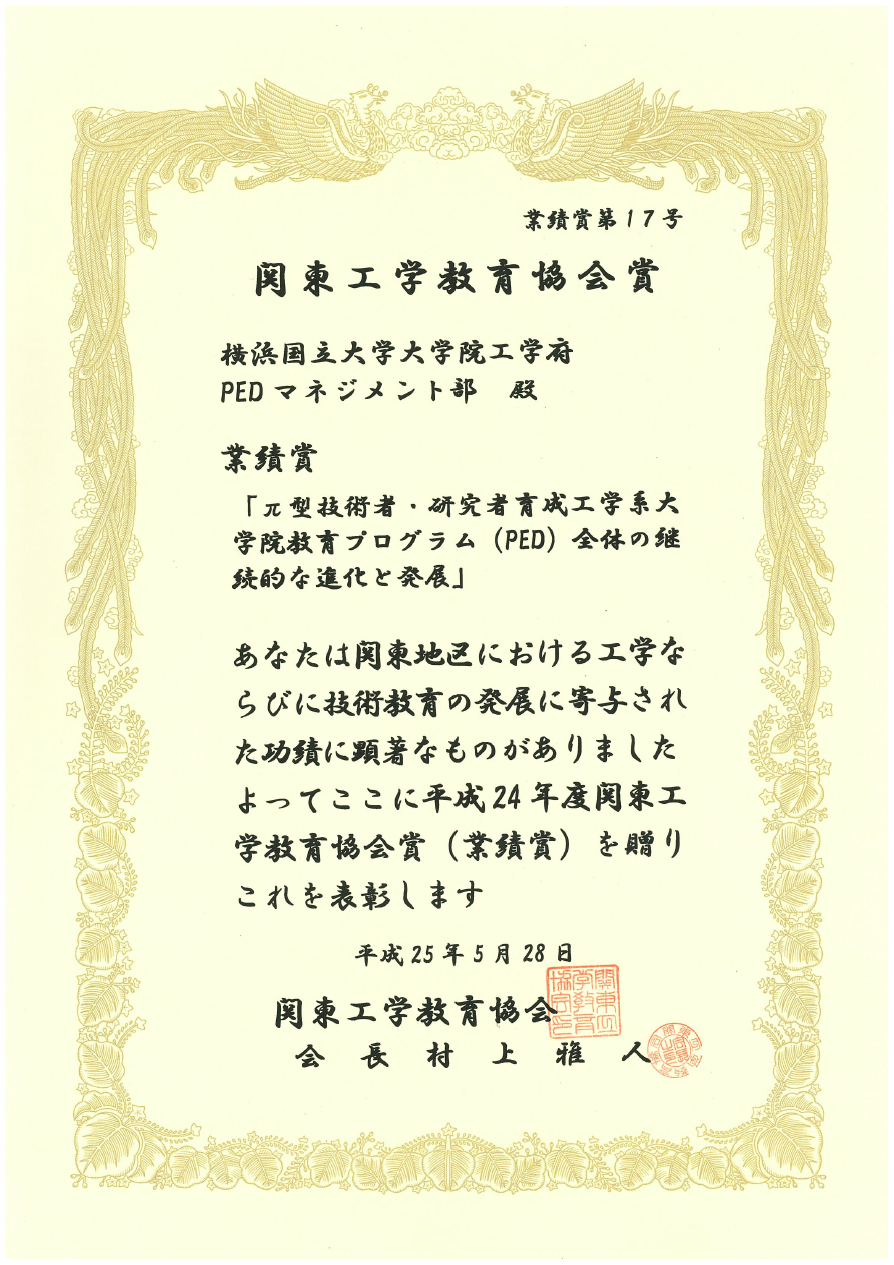 業績賞第17号
関東工学教育協会賞
横浜国立大学大学院工学府
PEDマネジメント部 殿
業績賞
「π型技術者・研究者育成工学系大
学院教育プログラム（PED）全体の継
続的な進化と発展」
あなたは関東地区における工学な
らびに技術教育の発展に寄与され
た功績に顕著なものがありました
よってここに平成24年度関東工
学教育協会賞（業績賞）を贈り
これを表彰します
平成25年5月28日
関東工学教育協会
会長 村上雅人